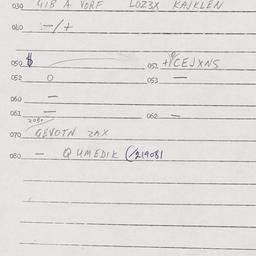 030 A VORF LOZ3X KAJKLEN
040 -/+
050 $ 051 +YCEJXNS
052 0 053 -
060 -
061 = 062 -
070 GEVOTN ZAX
080 - QUMEDIK (/219081